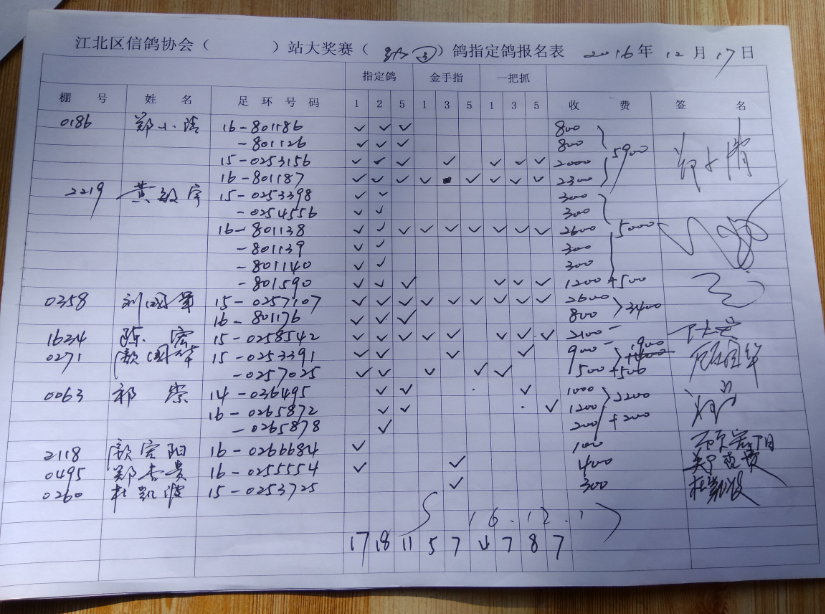 江北区信鸽协会（ ）站大奖赛（ ）鸽指定鸽报名表 2016年12月17日
指定鸽 金手指 一把抓
棚号 姓名 足环号码 1 2 5 1 3 5 1 3 5 收费 签名
0186 郑小清 16-801186 ✓ ✓ ✓ 800
-801126 ✓ ✓ ✓ 800 5900
15-0253156 ✓ ✓ ✓ ✓ ✓ ✓ ✓ 2000
16-801187 ✓ ✓ ✓ ✓ ✓ ✓ ✓ ✓ 2300
2219 黄敏宇 15-0253398 ✓ ✓ 300
-0254556 ✓ ✓ 300
16-801138 ✓ ✓ ✓ ✓ ✓ ✓ ✓ ✓ ✓ 2600 5000
-801139 ✓ ✓ 300
-801140 ✓ ✓ 300
-801590 ✓ ✓ ✓ ✓ ✓ ✓ 1200 +500
0358 刘国 15-0257107 ✓ ✓ ✓ ✓ ✓ ✓ ✓ ✓ ✓ 2600 3400
16-801176 ✓ ✓ ✓ 800
1624 陈宏 15-0258542 ✓ ✓ ✓ ✓ ✓ ✓ ✓ ✓ 2100
0271 颜国华 15-0253391 ✓ ✓ ✓ ✓ 900 1900
-0257025 ✓ ✓ ✓ ✓ ✓ 500 +500
0063 祁荣 14-036495 ✓ ✓ ✓ 1000 2200
16-0265872 ✓ ✓ ✓ 1200
-0265878 ✓ 200 +200
2118 颜宏阳 16-0266684 ✓ 100
0495 郑杏贵 16-0255554 ✓ ✓ 400
0260 杜凯波 15-0253725 ✓ 300 杜凯波
16.12.17
17 18 11 5 7 7 8 7